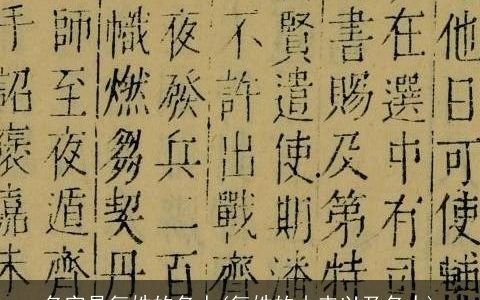 他日可使輔
在選中有司
書賜及第特
賢遣使期潘
不許出戰齊
夜發兵二百
幟燃芻契丹
師至夜遁齊
手詔褒嘉未